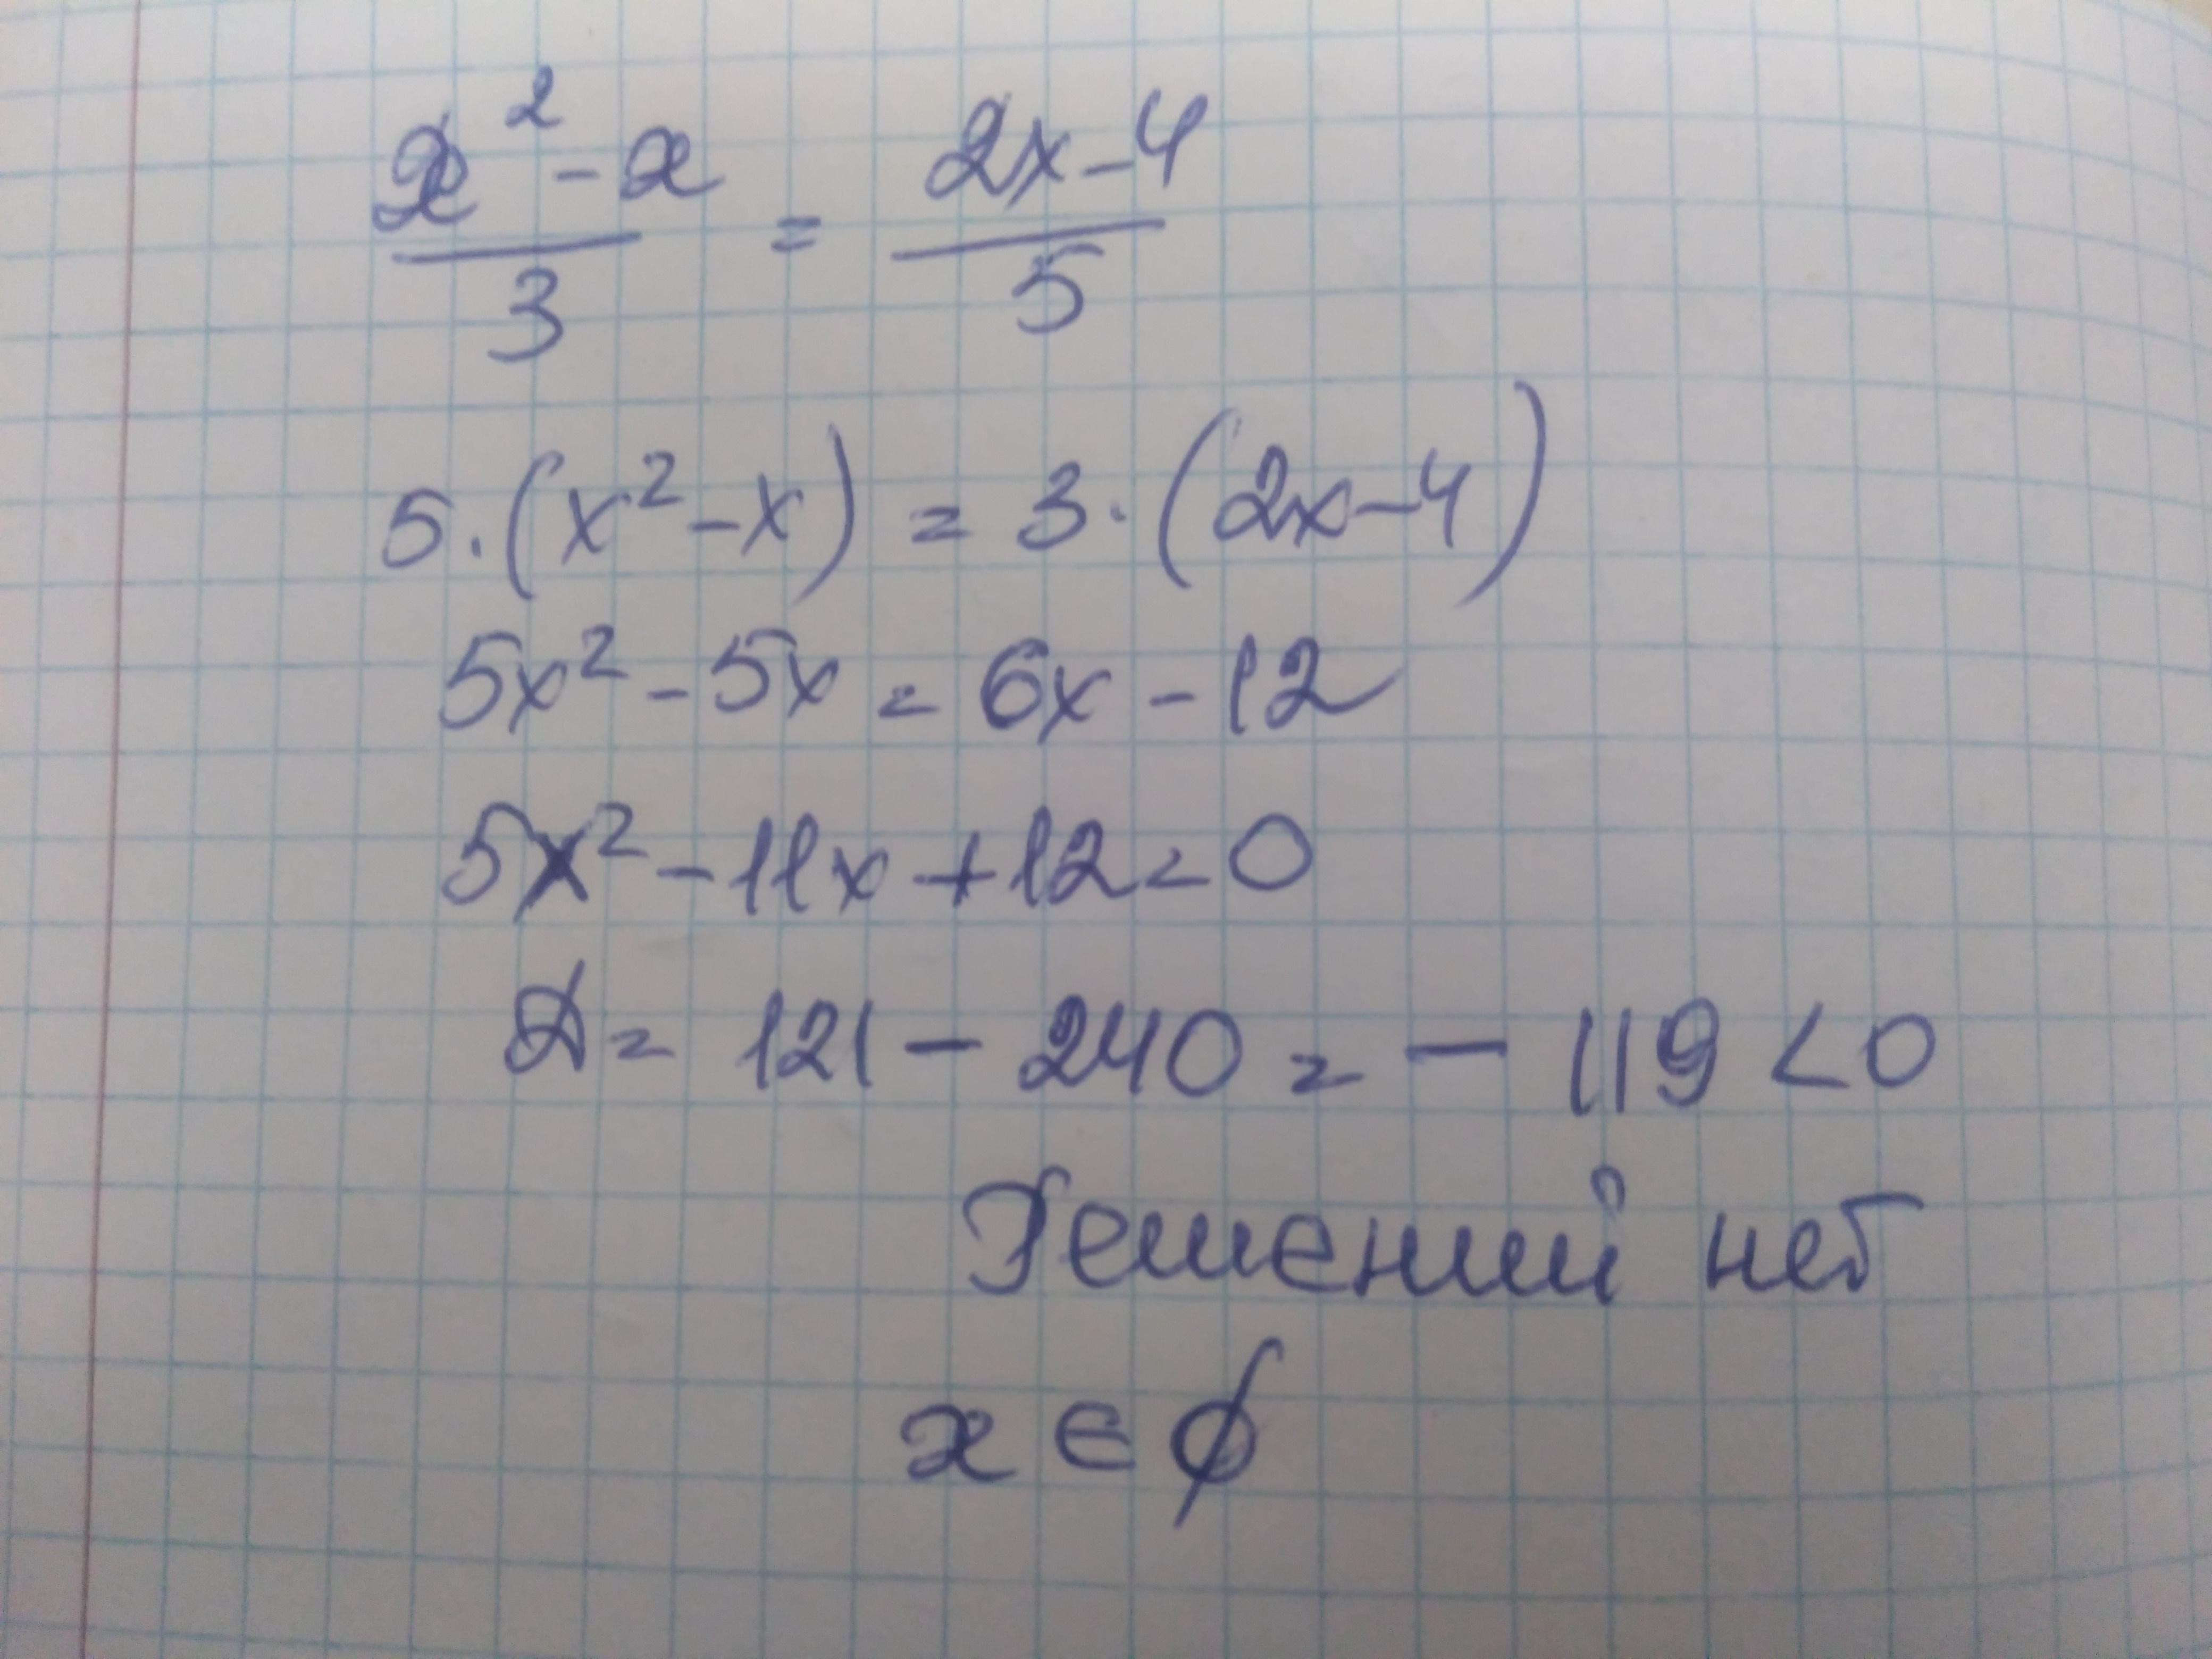 x² - x / 3 = 2x - 4 / 5
5 · (x² - x) = 3 · (2x - 4)
5x² - 5x = 6x - 12
5x² - 11x + 12 = 0
D = 121 - 240 = - 119 < 0
Решений нет
x ∈ ∅